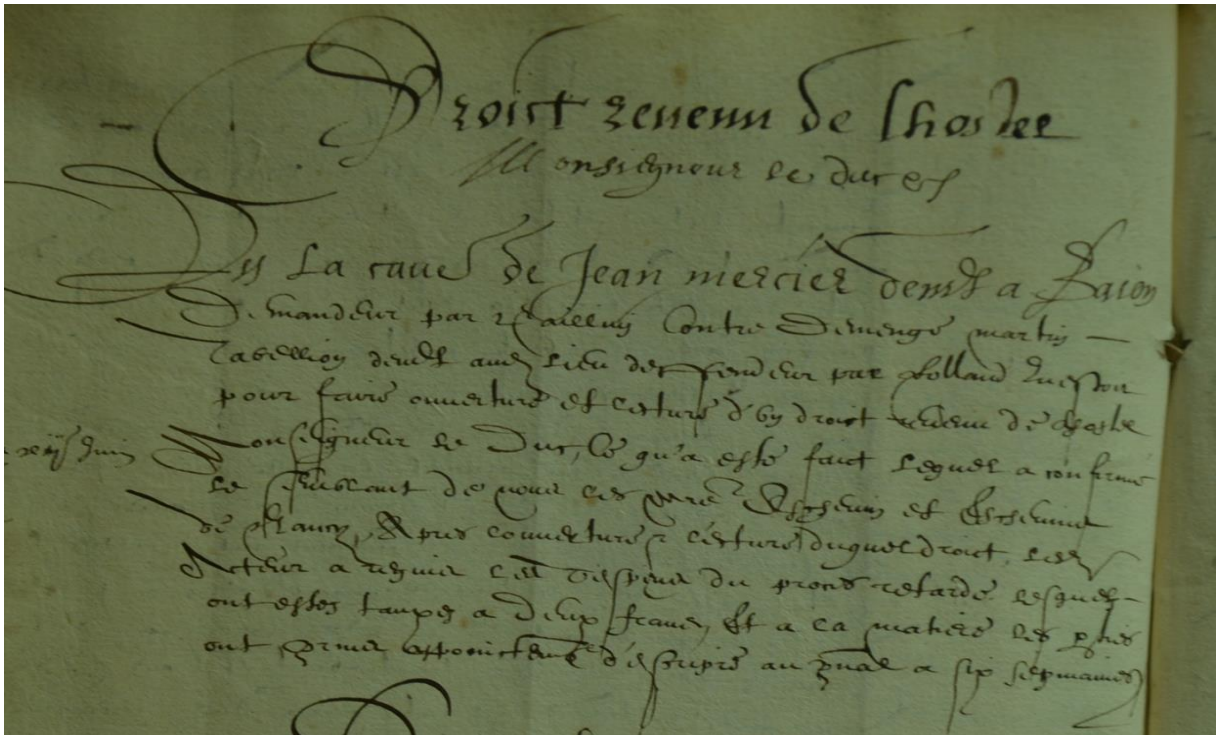 Droict revenu de lhostel
Monseigneur le duc
En La cause de Jean mercier demt a Baion
Demandeur par contre Demenge martin
Tabellion demt aud lieu deffendeur par
pour faire ouverture et lecture d'un droict revenu de lhostel
Monseigneur le Duc, ce qu'a esté faict lequel a confirmé
le semblant de nous les Eschevin et Eschevins
de Nancy, Apres l'ouverture & lecture duquel droict, led
Acteur a requis les despens du proces retardé lesquelz
ont estes taxes a deux francs, Et a la matiere les pties
ont prins appoinctemt d'escripre au a six sepmaines